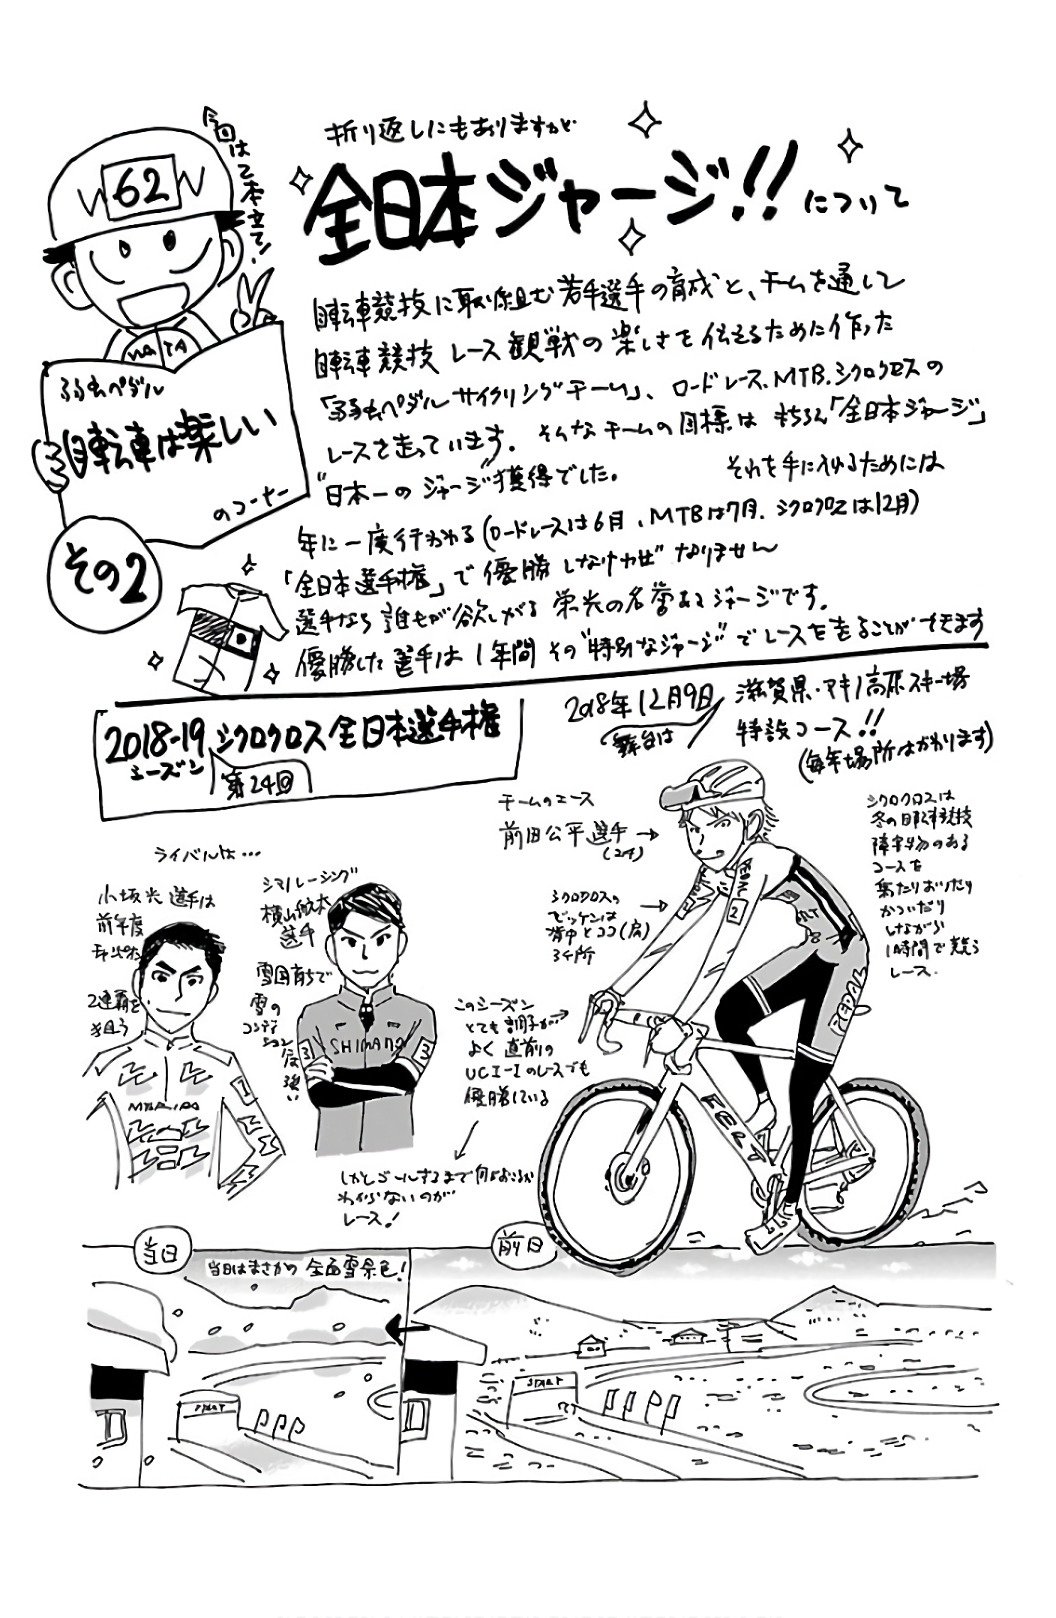 今回は2本立て!
62
WATA
弱虫ペダル
自転車は楽しい
のコーナー
その2
折り返しにもありますが
全日本ジャージ!!について
自転車競技に取り組む若手選手の育成と、チームを通して
自転車競技 レース観戦の楽しさを伝えるために作った
「弱虫ペダルサイクリングチーム」、ロードレース、MTB、シクロクロスの
レースを走っています。そんなチームの目標はもちろん「全日本ジャージ」
"日本一のジャージ"獲得でした。 それを手に入れるためには
年に一度行われる(ロードレースは6月、MTBは7月、シクロクロスは12月)
「全日本選手権」で優勝しなければなりません
選手なら誰もが欲しがる栄光の名誉あるジャージです。
優勝した選手は1年間その"特別なジャージ"でレースを走ることができます
2018-19シクロクロス全日本選手権
シーズン
第24回
2018年12月9日
舞台は
滋賀県・マキノ高原スキー場
特設コース!!
(毎年場所はかわります)
チームのエース
前田公平選手→
(24)
シクロクロスの
ゼッケンは
背中とココ(肩)
3ヶ所
シクロクロスは
冬の自転車競技
障害物のある
コースを
乗たりおりたり
かついだり
しながら
1時間で競う
レース.
ライバルは…
小坂光選手は
前年度
チャンピオン
2連覇を
狙う
シマノレーシング
横山航太
選手
雪国育ちで
雪の
コンディ
ション
に強い
このシーズン
とても調子が
よく 直前の
UCI-1のレースでも
優勝している
しかしゴールするまで何がおこるか
わからないのが
レース!
1
3
SHIMANO
3
MERIDA
PEDAL
2
FELT
PEDAL
FELT
当日
当日はまさかの 全面雪景色!
前日
START
START